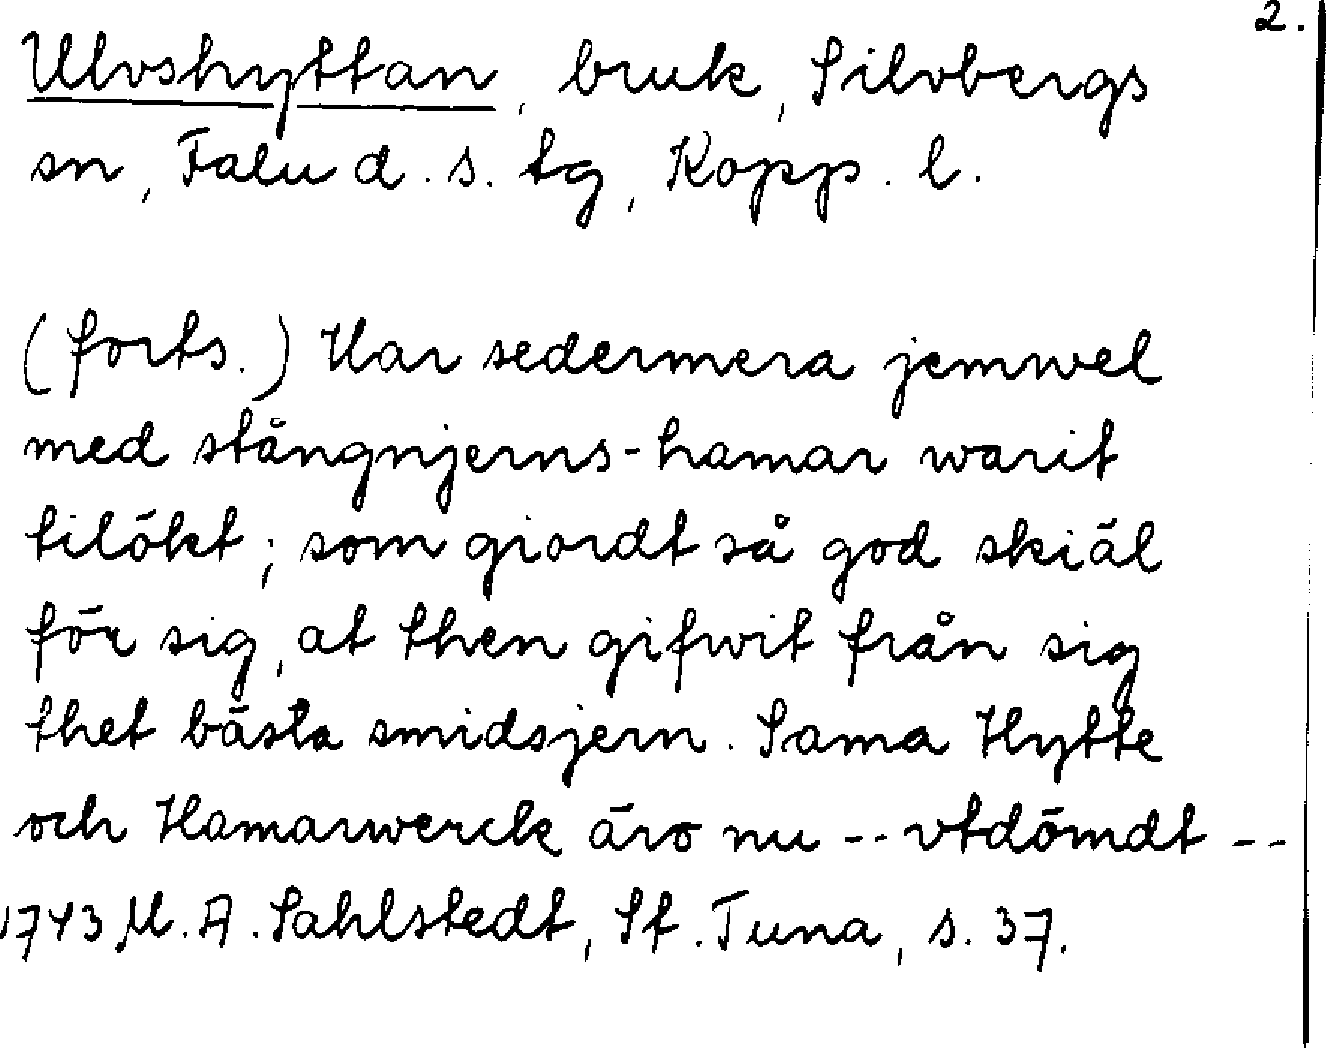 2.
Ulvshyttan, bruk, Silvbergs
sn, Falu d. s. tg, Kopp. l.
(forts.) Har sedermera jemwel
med stångnjerns-hamar warit
tilökt; som giordt så god skiäl
för sig, at then gifwit från sig
thet bästa smidsjern. Sama Hytte
och Hamarwerck äro nu -- vtdömdt --
1743 M. A. Sahlstedt, St. Tuna, s. 37.